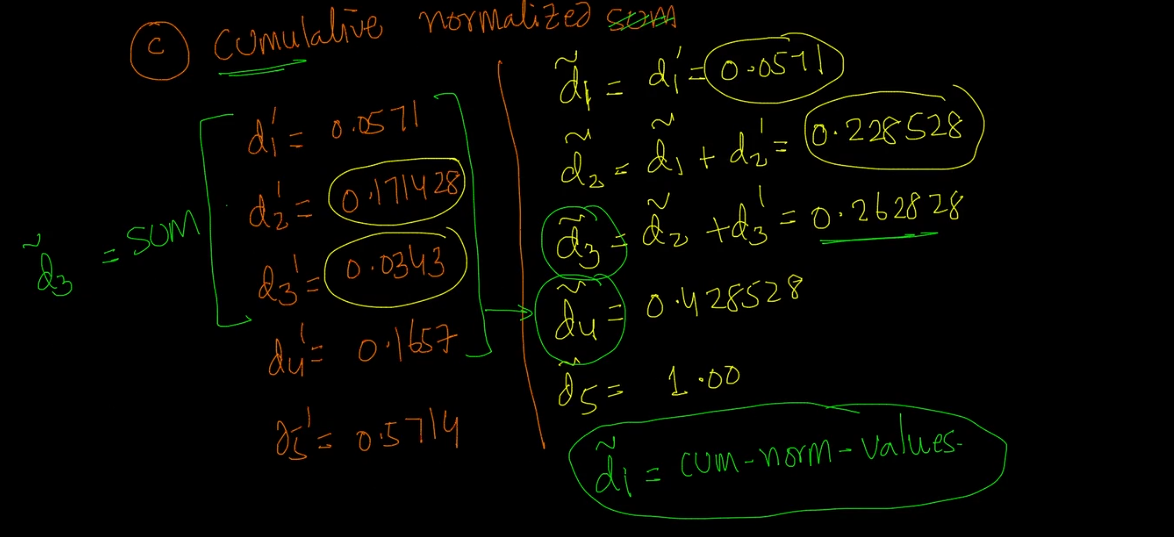 C Cumulative normalized sum
d1' = 0.0571
d2' = 0.171428
d3' = 0.0343
d4' = 0.1657
d5' = 0.5714
d̃3 = SUM
d̃1 = d1' = 0.0571
d̃2 = d̃1 + d2' = 0.228528
d̃3 = d̃2 + d3' = 0.262828
d̃4 = 0.428528
d̃5 = 1.00
d̃1 = cum-norm-values.